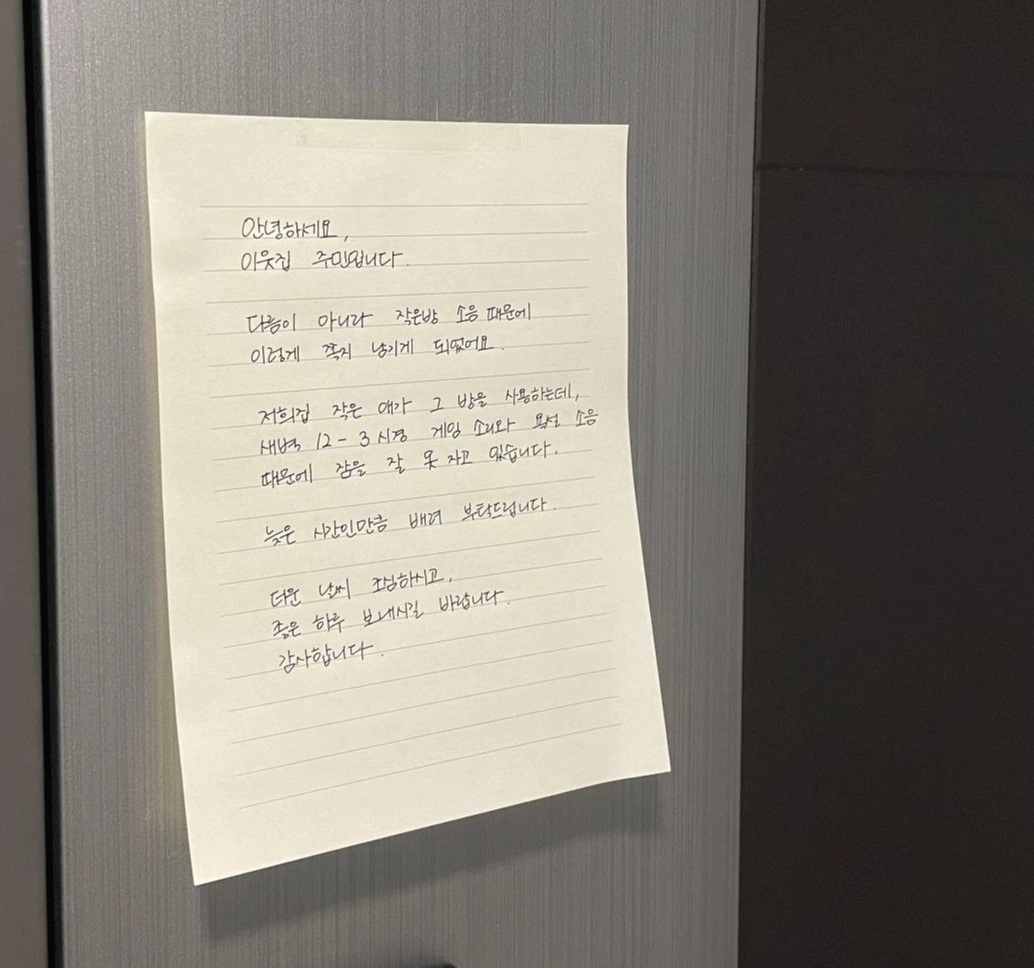 안녕하세요,
이웃집 주민입니다.
다름이 아니라 작은방 소음 때문에
이렇게 쪽지 남기게 되었어요.
저희집 작은 애가 그 방을 사용하는데,
새벽 12-3시경 게임 소리와 욕설 소음
때문에 잠을 잘 못 자고 있습니다.
늦은 시간인만큼 배려 부탁드립니다.
더운 날씨 조심하시고,
좋은 하루 보내시길 바랍니다.
감사합니다.